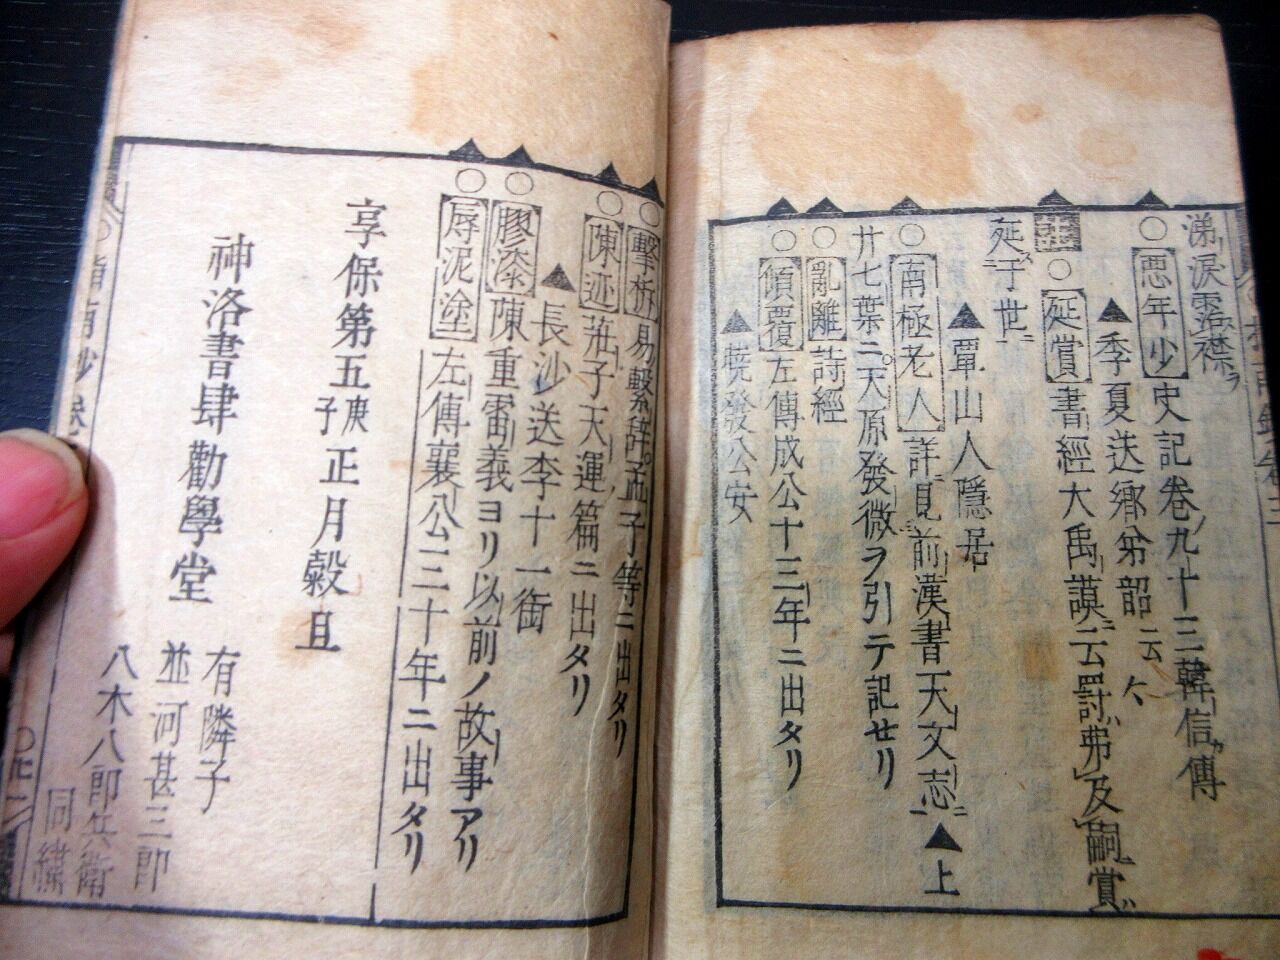 涕涙霑襟ヲ
○悪年少史記巻ノ九十三韓信ガ傳
▲季夏送郷弟韶云云
○延賞書經大禹謨ニ云罰弗及嗣賞
延于世
▲單山人隱居
○南極老人詳見前漢書天文志ニ▲上
廿七葉ニ天原發微ヲ引テ記セリ
○亂離詩經
○傾覆左傳成公十三年ニ出タリ
▲暁發公安
○擊柝易繫辭孟子等ニ出タリ
○陳迹莊子天運篇ニ出タリ
▲長沙送李十一銜
○膠漆陳重雷義ヨリ以前ノ故事アリ
○辱泥塗左傳襄公三十年ニ出タリ
享保第五庚子正月穀旦
神洛書肆勸學堂
有隣子
並河甚三郎
八木八郎兵衛
同繡